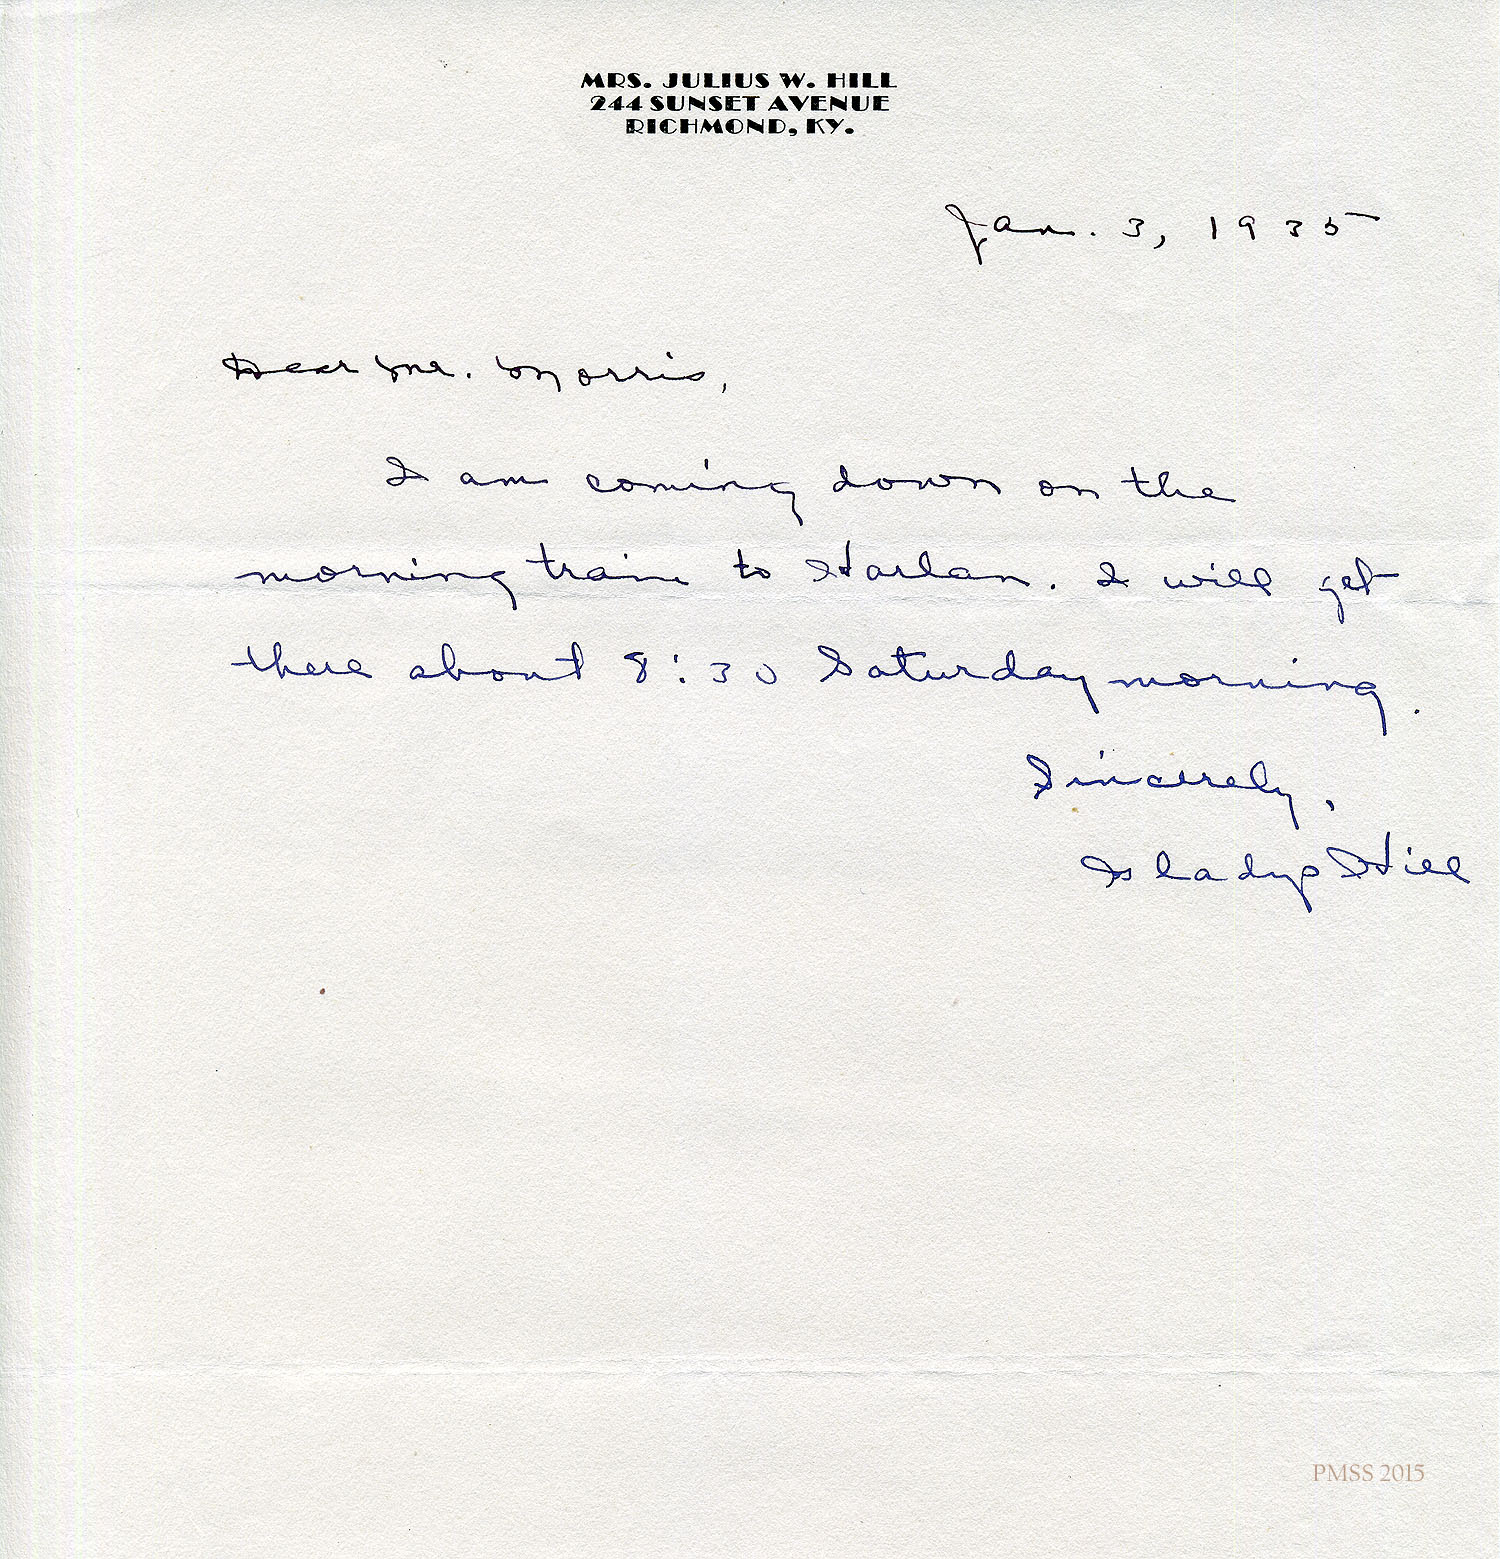 MRS. JULIUS W. HILL
244 SUNSET AVENUE
RICHMOND, KY.
Jan. 3, 1935
Dear Mr. Morris,
I am coming down on the
morning train to Harlan. I will get
there about 8:30 Saturday morning.
Sincerely,
Gladys Hill
PMSS 2015